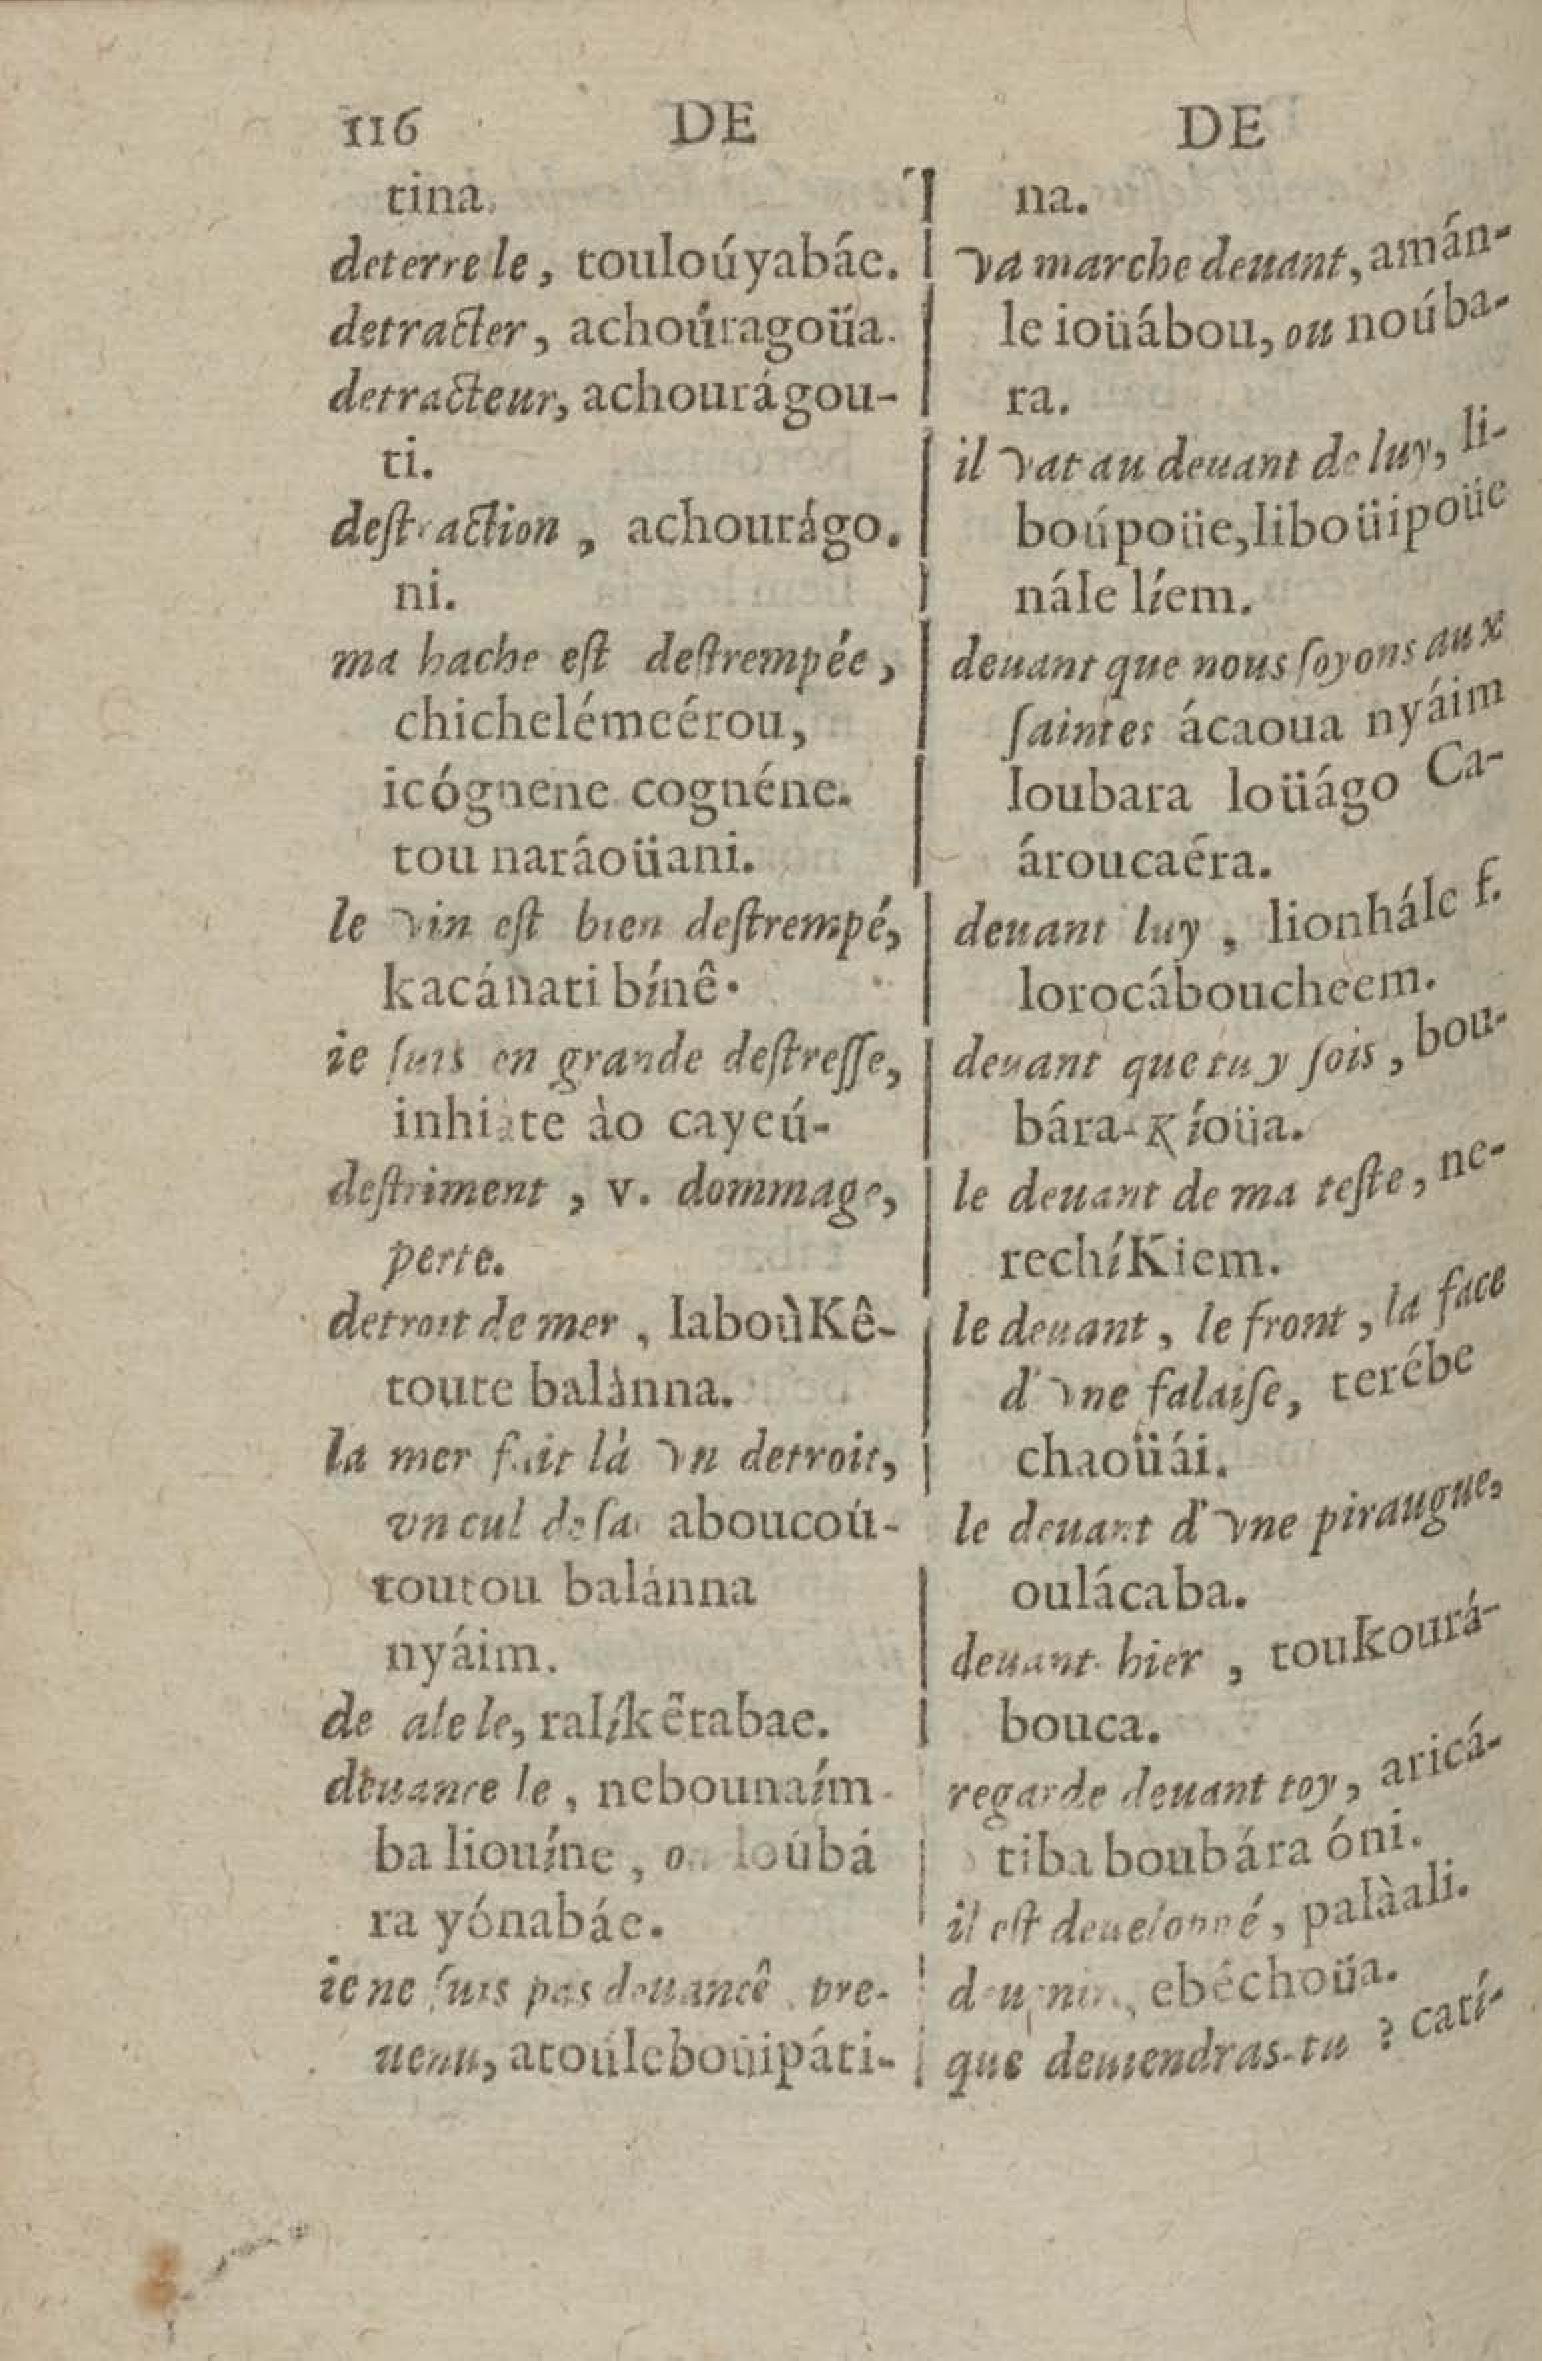 116 DE
tina.
deterre le, touloúyabáe.
detracter, achoúragoüa.
detracteur, achourágou-
ti.
deſtraction, achourágo.
ni.
ma hache eſt deſtrempée,
chichelémeérou,
icógnene cognéne.
tou naráoüani.
le vin eſt bien deſtrempé,
kacánati bínê.
ie ſuis en grande deſtreſſe,
inhiate ào cayeú-
deſtriment, v. dommage,
perte.
detroit de mer, IaboùKê-
toute balànna.
la mer fait là vn detroit,
vn cul de ſa aboucoú-
toutou balánna
nyáim.
de ale le, ralíkêtabae.
deuance le, nebounaím-
ba liouíne, ou loúbá
ra yónabáe.
ie ne ſuis pas deuancê pre-
uenu, atoúleboüipáti-
DE
na.
va marche deuant, amán-
le ioüábou, ou noúba-
ra.
il vat au deuant de luy, li-
boúpoüe, liboüipoüe
nále líem.
deuant que nous ſoyons aux
ſaintes ácaoua nyáim
Ioubara loüágo Ca-
ároucaéra.
deuant luy, lionhále f.
lorocáboucheem.
deuant que tu y ſois, bou-
bára-Kíoüa.
le deuant de ma teſte, ne-
rechíKiem.
le deuant, le front, la face
d'vne falaiſe, terébe
chaoüái.
le deuant d'vne piraugue,
oulácaba.
deuant hier, toukourá-
bouca.
regarde deuant toy, aricá-
tiba boubára óni.
il eſt deuelonné, palàali.
ebéchoüa.
que deuiendras-tu ? catí-